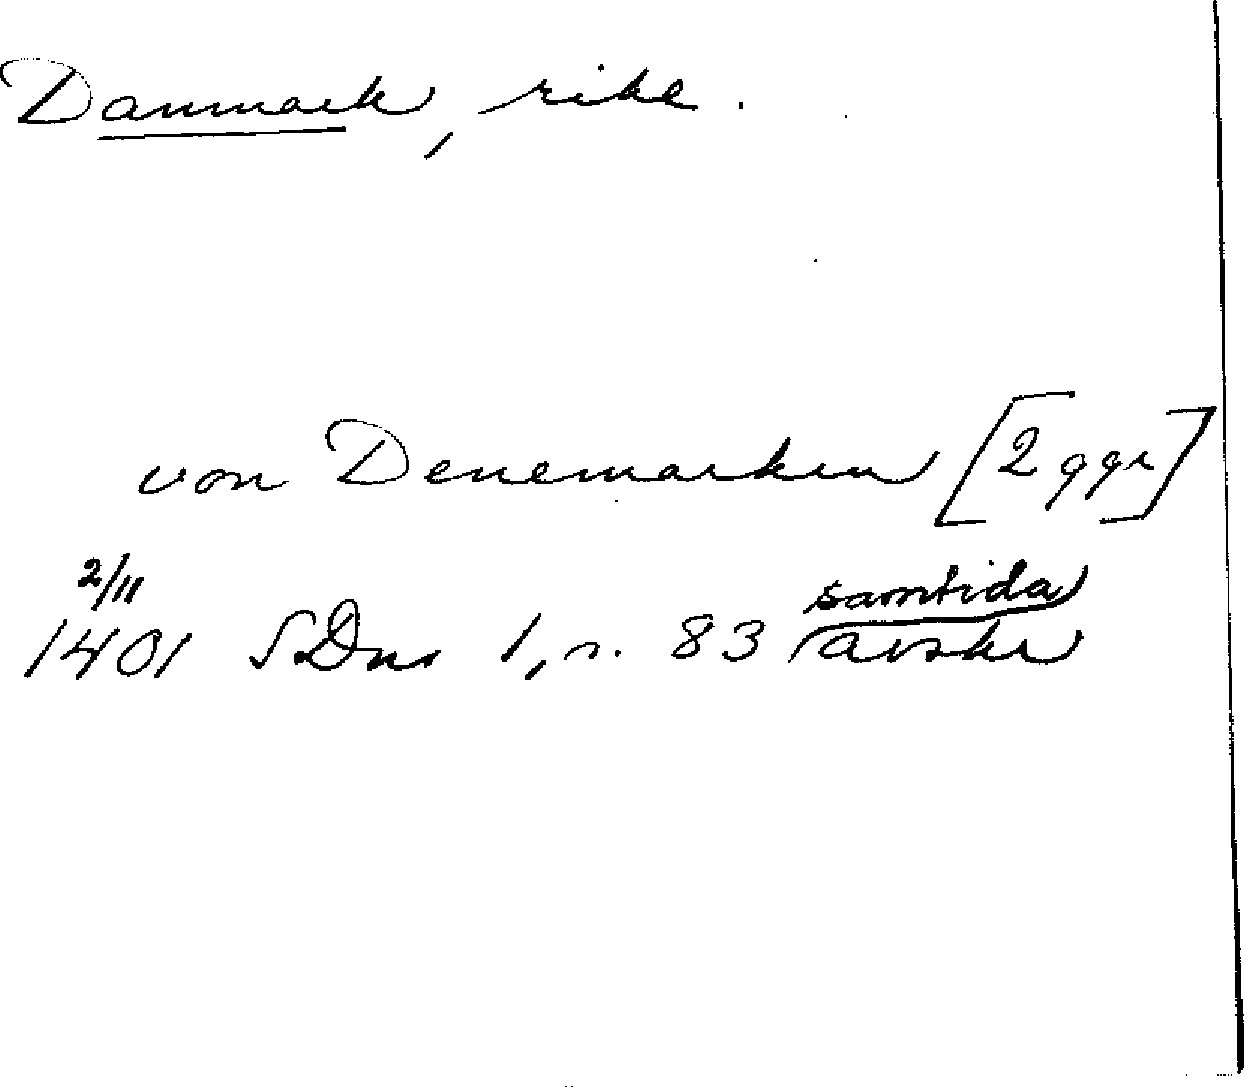 Danmark, rike.
von Denemarken [2 ggr]
2/11
1401 SDns 1, s. 83 samtida avskr